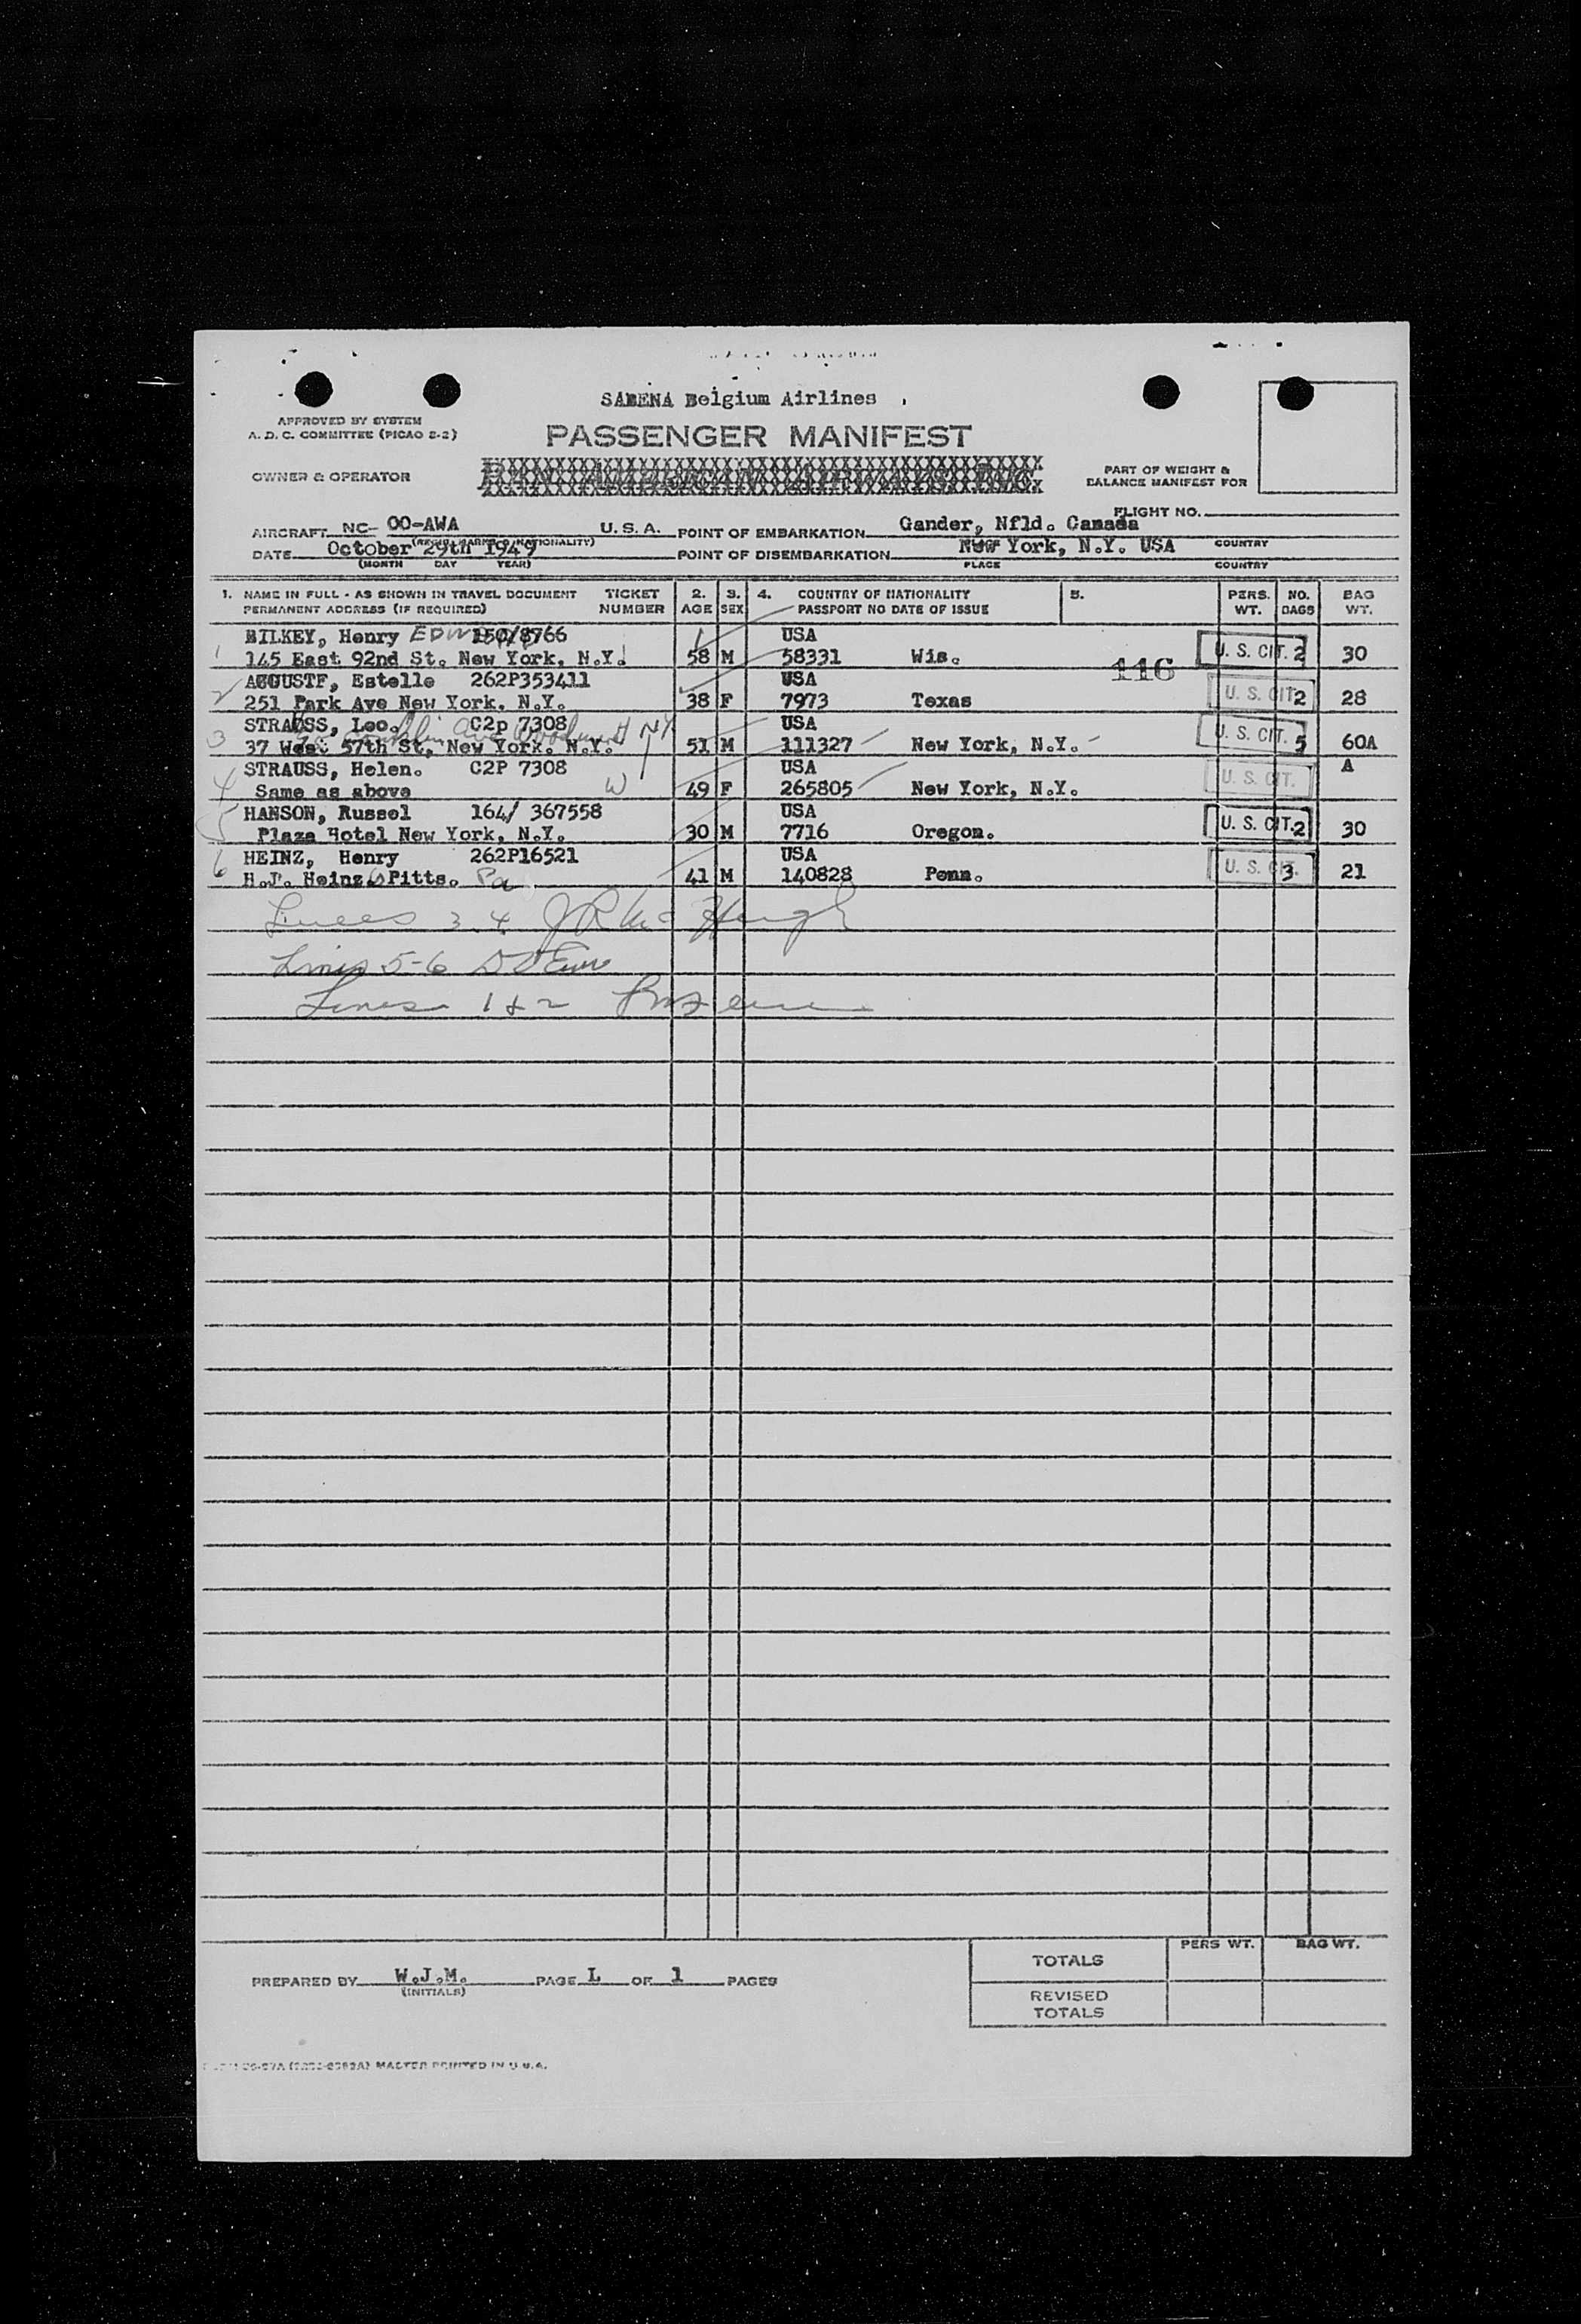 SABENA Belgium Airlines
APPROVED BY SYSTEM
A. D. C. COMMITTEE (PICAO E-2)
PASSENGER MANIFEST
OWNER & OPERATOR
PART OF WEIGHT &
BALANCE MANIFEST FOR
FLIGHT NO.
AIRCRAFT NC- OO-AWA U. S. A. POINT OF EMBARKATION Gander, Nfld. Canada
(REGIS. MARKS & NATIONALITY)
DATE October 29th 1949 POINT OF DISEMBARKATION New York, N.Y. USA COUNTRY
(MONTH DAY YEAR) PLACE COUNTRY
1. NAME IN FULL - AS SHOWN IN TRAVEL DOCUMENT TICKET 2. 3. 4. COUNTRY OF NATIONALITY 5. PERS. NO. BAG
PERMANENT ADDRESS (IF REQUIRED) NUMBER AGE SEX PASSPORT NO DATE OF ISSUE WT. BAGS WT.
BILKEY, Henry USA
1 145 East 92nd St. New York, N.Y. 58 M 58331 Wis. 116 U. S. CIT. 2 30
AUGUSTF, Estelle 262P353411 USA
2 251 Park Ave New York, N.Y. 38 F 7973 Texas U. S. CIT. 2 28
STRAUSS, Leo. C2p 7308 USA
3 37 West 57th St, New York. N.Y. 51 M 111327 New York, N.Y. U. S. CIT. 5 60A
STRAUSS, Helen. C2P 7308 USA A
4 Same as above W 49 F 265805 New York, N.Y. U. S. CIT.
HANSON, Russel 164/ 367558 USA
5 Plaza Hotel New York, N.Y. 30 M 7716 Oregon. U. S. CIT. 2 30
HEINZ, Henry 262P16521 USA
6 H.J. Heinz Pitts. Pa 41 M 140828 Penn. U. S. CIT. 3 21
Lines 3.4 JR McHugh
Lines 5-6
Lines 1 & 2
TOTALS PERS WT. BAG WT.
PREPARED BY W.J.M. PAGE L OF 1 PAGES
(INITIALS)
REVISED
TOTALS
MASTER PRINTED IN U.S.A.